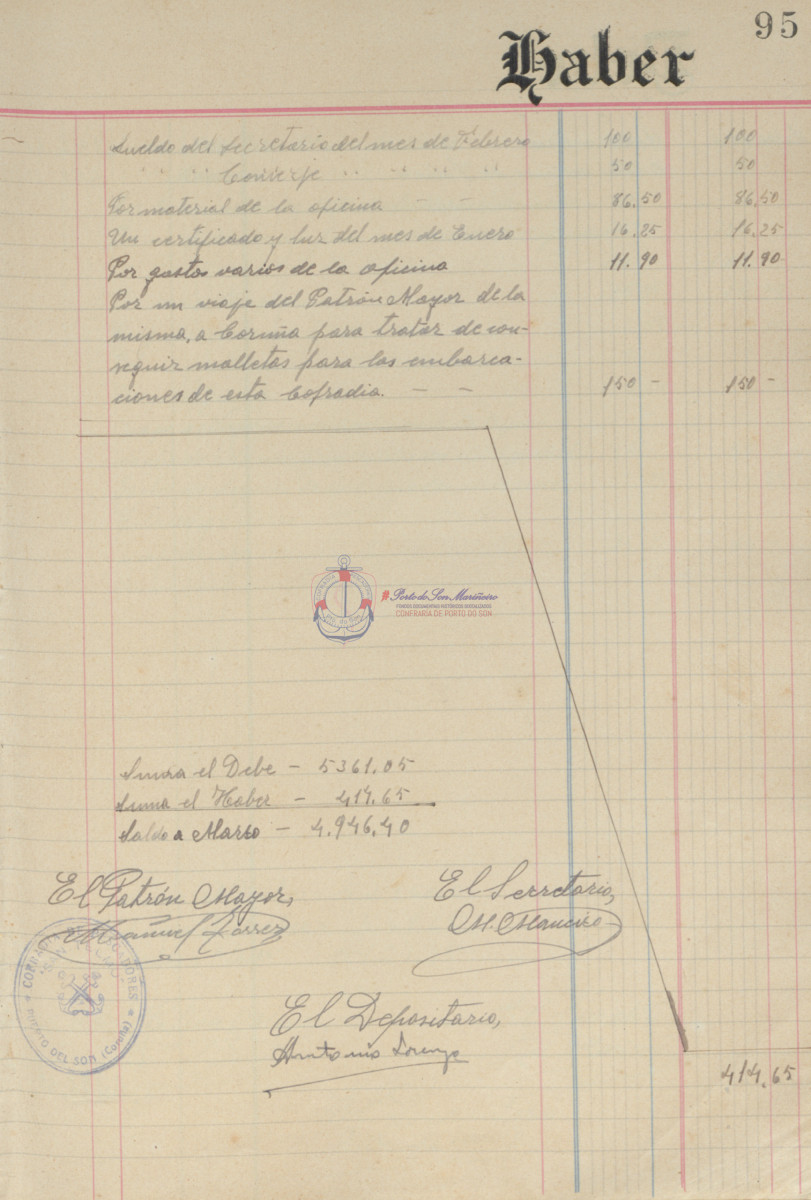 95
Haber
Sueldo del Secretario del mes de Febrero 100 100
" " Conserje " " " " 50 50
Por material de la oficina — — 86,50 86,50
Un certificado y luz del mes de Enero 16,25 16,25
Por gastos varios de la oficina 11.90 11.90
Por un viaje del Patrón Mayor de la
misma, a Coruña para tratar de con-
seguir malletas para las embarca-
ciones de esta Cofradia. — — 150 - 150 -
Porto do Son Mariñeiro
CONFRARÍA DE PORTO DO SON
Suma el Debe - 5361.05
Suma el Haber - 414.65
Saldo a Marzo - 4.946,40
El Patrón Mayor,
Manuel
El Secretario,
M. Maneiro
PUERTO DEL SON (Coruña)
El Depositario,
Antonio Lorenzo
414.65